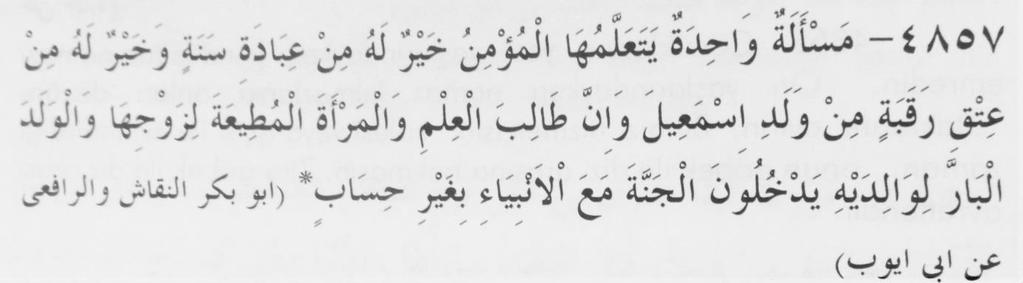 ٤٨٥٧- مَسْأَلَةٌ وَاحِدَةٌ يَتَعَلَّمُهَا الْمُؤْمِنُ خَيْرٌ لَهُ مِنْ عِبَادَةِ سَنَةٍ وَخَيْرٌ لَهُ مِنْ
عِتْقِ رَقَبَةٍ مِنْ وَلَدِ اِسْمَعِيلَ وَاِنَّ طَالِبَ الْعِلْمِ وَالْمَرْأَةَ الْمُطِيعَةَ لِزَوْجِهَا وَالْوَلَدَ
الْبَارَّ لِوَالِدَيْهِ يَدْخُلُونَ الْجَنَّةَ مَعَ الْاَنْبِيَاءِ بِغَيْرِ حِسَابٍ* (ابو بكر النقاش والرافعى
عن ابى ايوب)